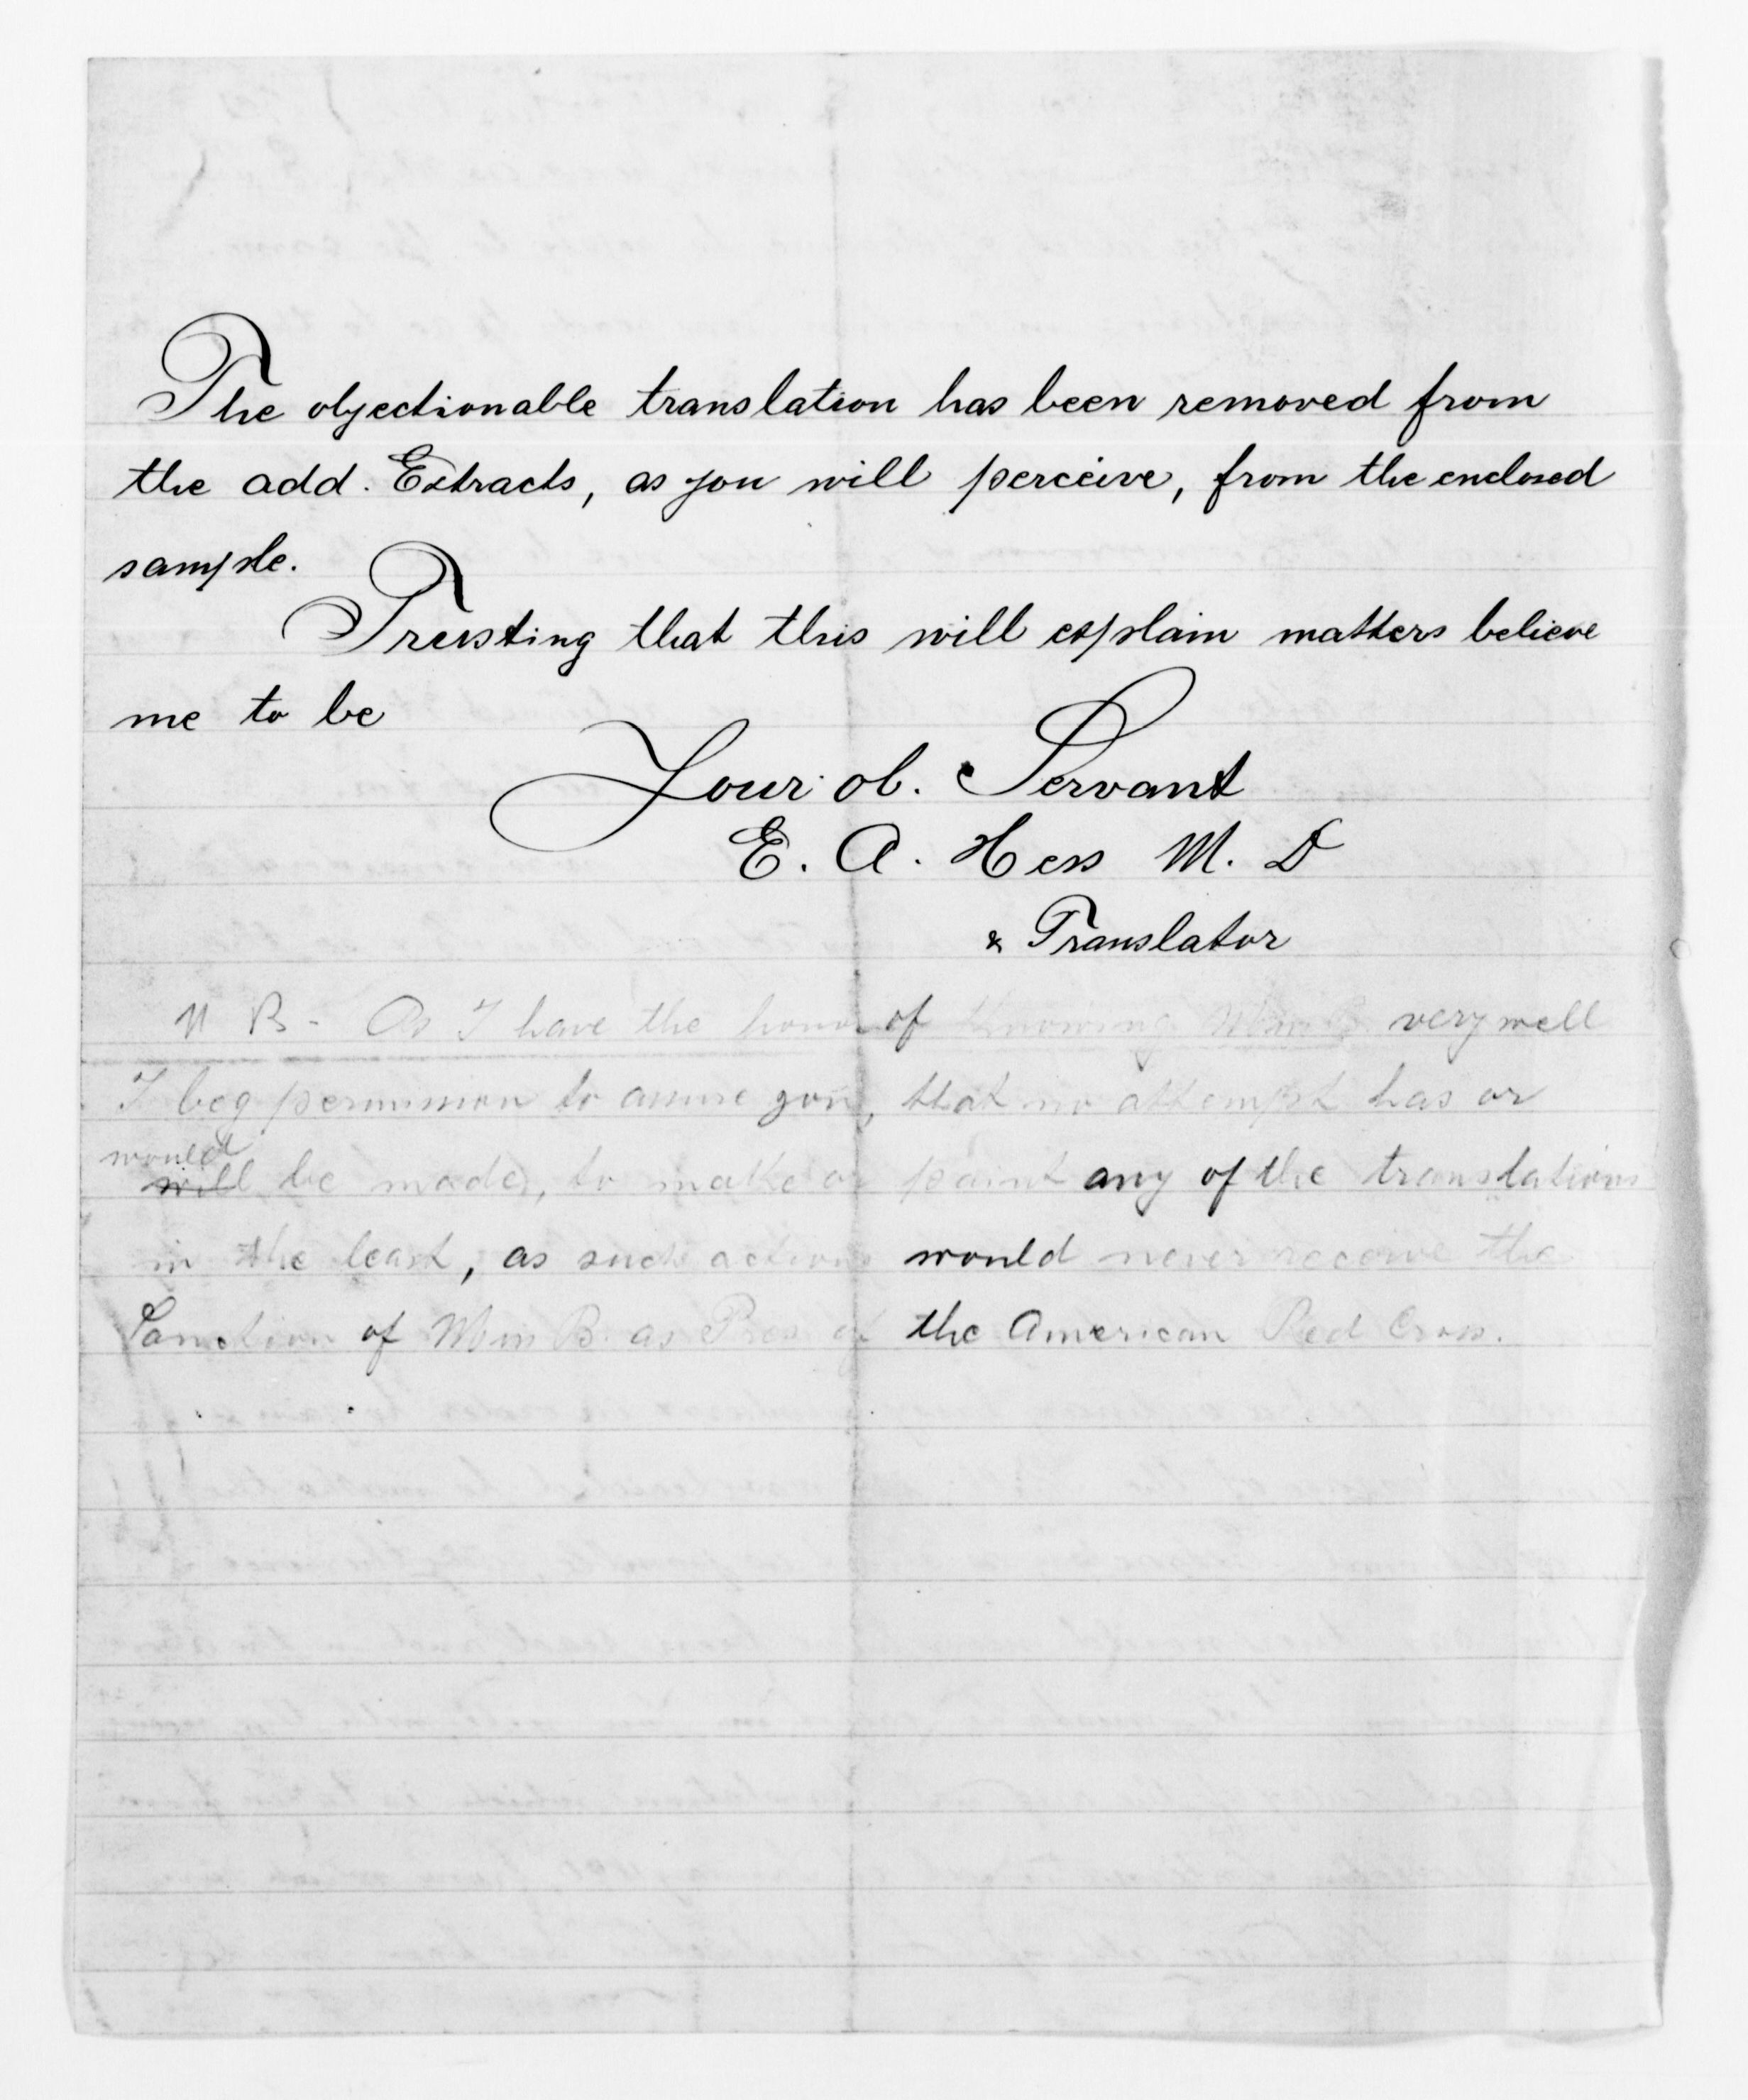 The objectionable translation has been removed from
the add. Extracts, as you will perceive, from the enclosed
sample.
Trusting that this will explain matters believe
me to be
Your ob. Servant
E. A. Hess M. D
& Translator
N B - As I have the honor of knowing Miss B. very well
I beg permission to assure you, that no attempt has or
would
will be made, to make or paint any of the translations
in the least, as such action would never receive the
Sanction of Miss B. as Pres of the American Red Cross.